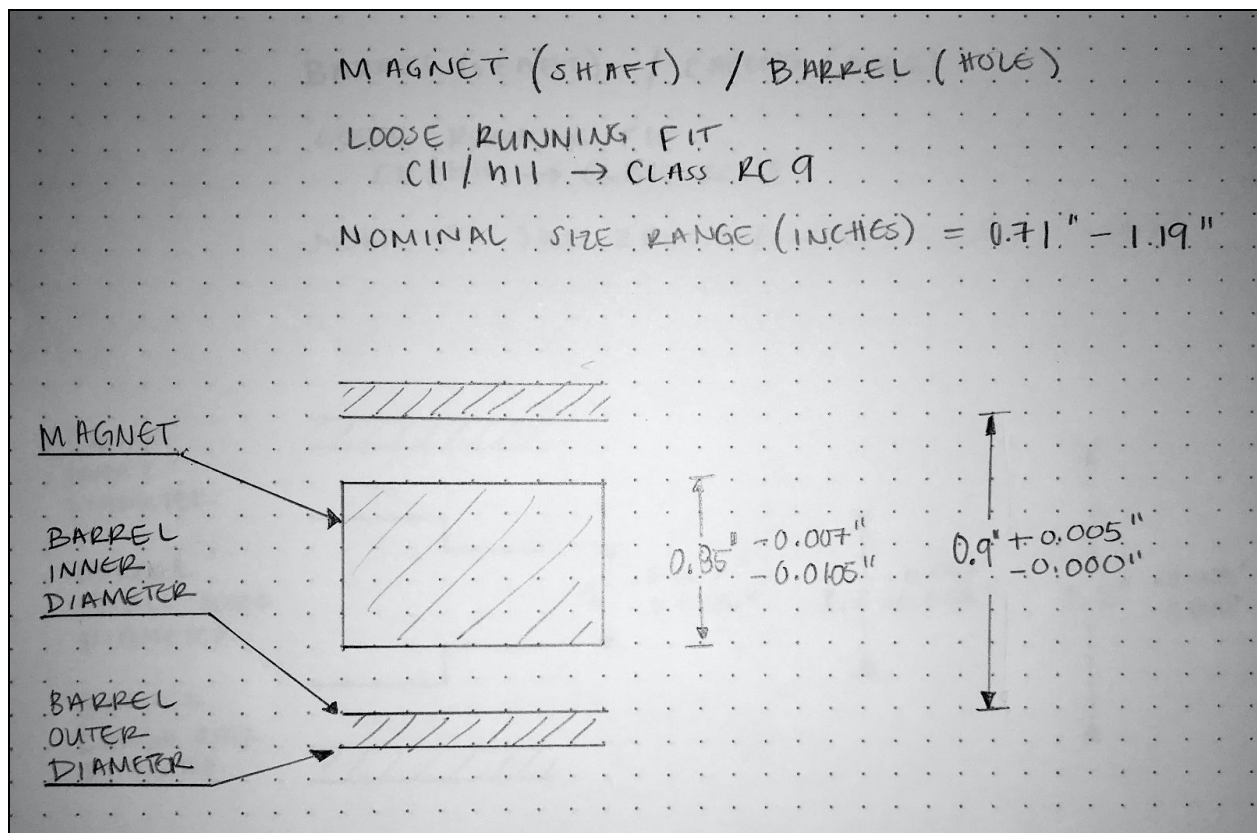 MAGNET (SHAFT) / BARREL (HOLE)
LOOSE RUNNING FIT
C11/h11 → CLASS RC 9
NOMINAL SIZE RANGE (INCHES) = 0.71" - 1.19"
MAGNET
BARREL
INNER
DIAMETER
BARREL
OUTER
DIAMETER
0.85" -0.007"
-0.0105"
0.9" +0.005"
-0.000"